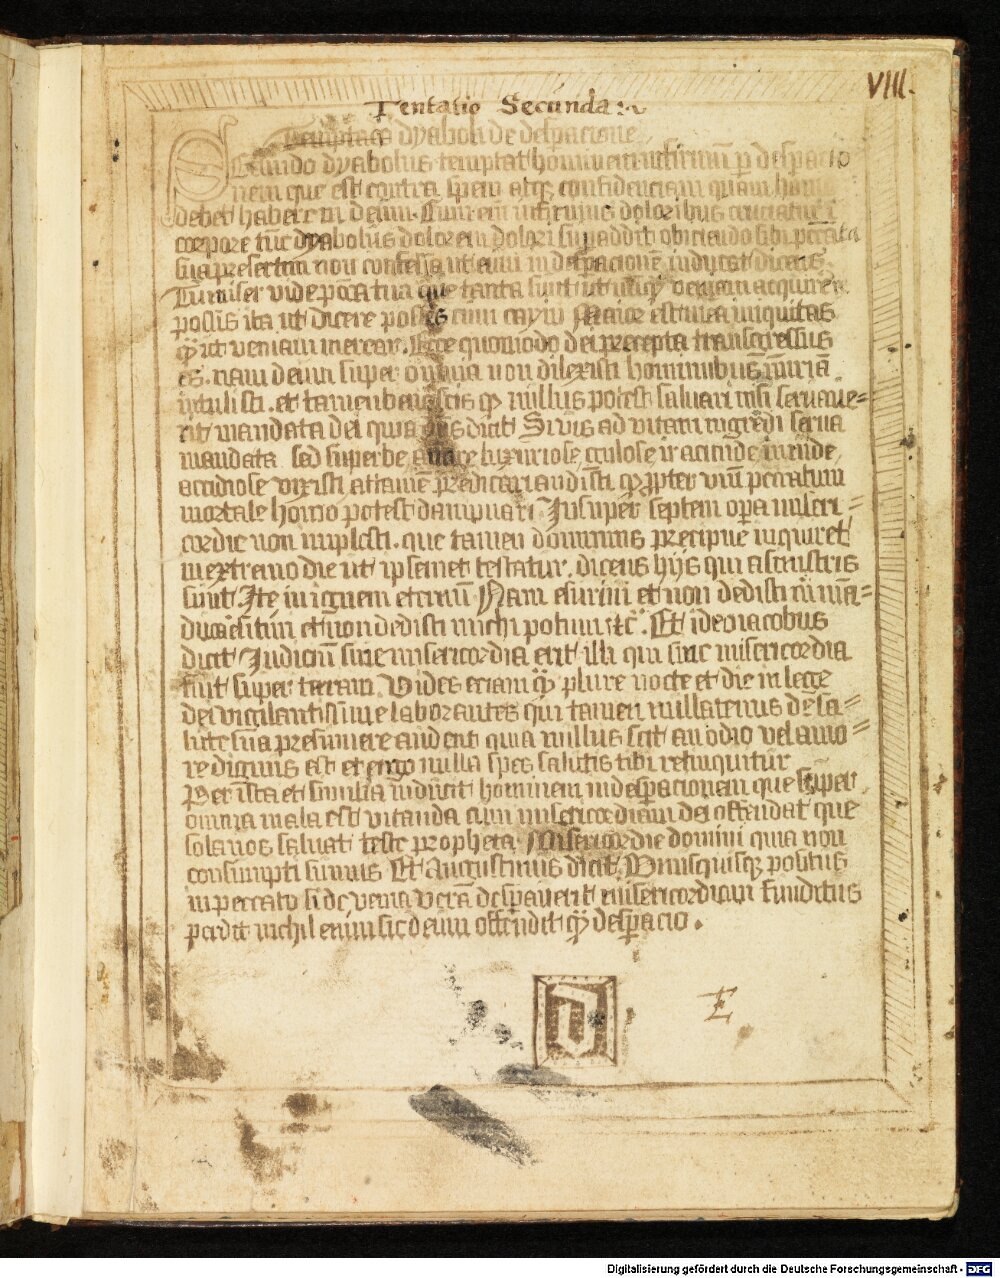 VIII.
Tentatio Secunda:~
Temptacō dyaboli de despacione
Secundo dyabolus temptat hominem infirmū ꝑ despacio
nem que est contra spem atqꝫ confidenciam quam homo
debet habere in deum. Cum em̄ infirmus doloribus cruciatur ī
corpore tūc dyabolus dolorem dolori supaddit obiciendo sibi pctāta
sua presertim non confessa ut eum in despacionē inducat dicens
Tu miser vide pctā tua que tanta sunt ut nūqꝫ veniam acquirere
possis ita ut dicere possis cum cayin Maior est mea iniquitas
qꝫ ut veniam merear. Ecce quomodo dei precepta transgressus
es. nam deum super omnia non dilexisti hominibus iniuriā
intulisti. et tamen bene scis qꝫ nullus potest saluari nisi seruaue=
rit mandata dei quia dn̄s dicit Si vis ad vitam ingredi serua
mandata sed superbe auare luxuriose gulose iracūde inuide
accidiose vixisti attamē predicari audisti qꝫ ꝓpter vnū peccatum
mortale homo potest dampnari. Insuper septem oꝑa miseri=
cordie non implesti. que tamen dominus precipue inquiret
in extremo die ut ipsemet testatur. dicens hijs qui a sinistris
sunt Ite in ignem eternū Nam esuriui et non dedisti m̄ mā=
ducāe sitiui et non dedisti michi potum ⁊tc̄. Et ideo iacobus
dicit Judiciū sine misericordia erit illi qui sine misericordia
fuit super terram. Vides eciam qꝫ plure nocte et die in lege
dei vigilantissime laborantes qui tamen nullatenus de sa=
lute sua presumere audent quia nullus scit an odio vel amo=
re dignus est et ergo nulla spes salutis tibi relinquitur
Per ista et similia inducit hominem in despacionem que super
omnia mala est vitanda cum misericordiam dei offendat que
sola nos saluat teste propheta Misericordie domini quia non
consumpti sumus Et Augustinus dicit. Vnusquisqꝫ positus
in peccato si de venia verā despauerit misericordiam funditus
perdit nichil enim sic deum offendit qꝫ despacio.
D
E
Digitalisierung gefördert durch die Deutsche Forschungsgemeinschaft - DFG